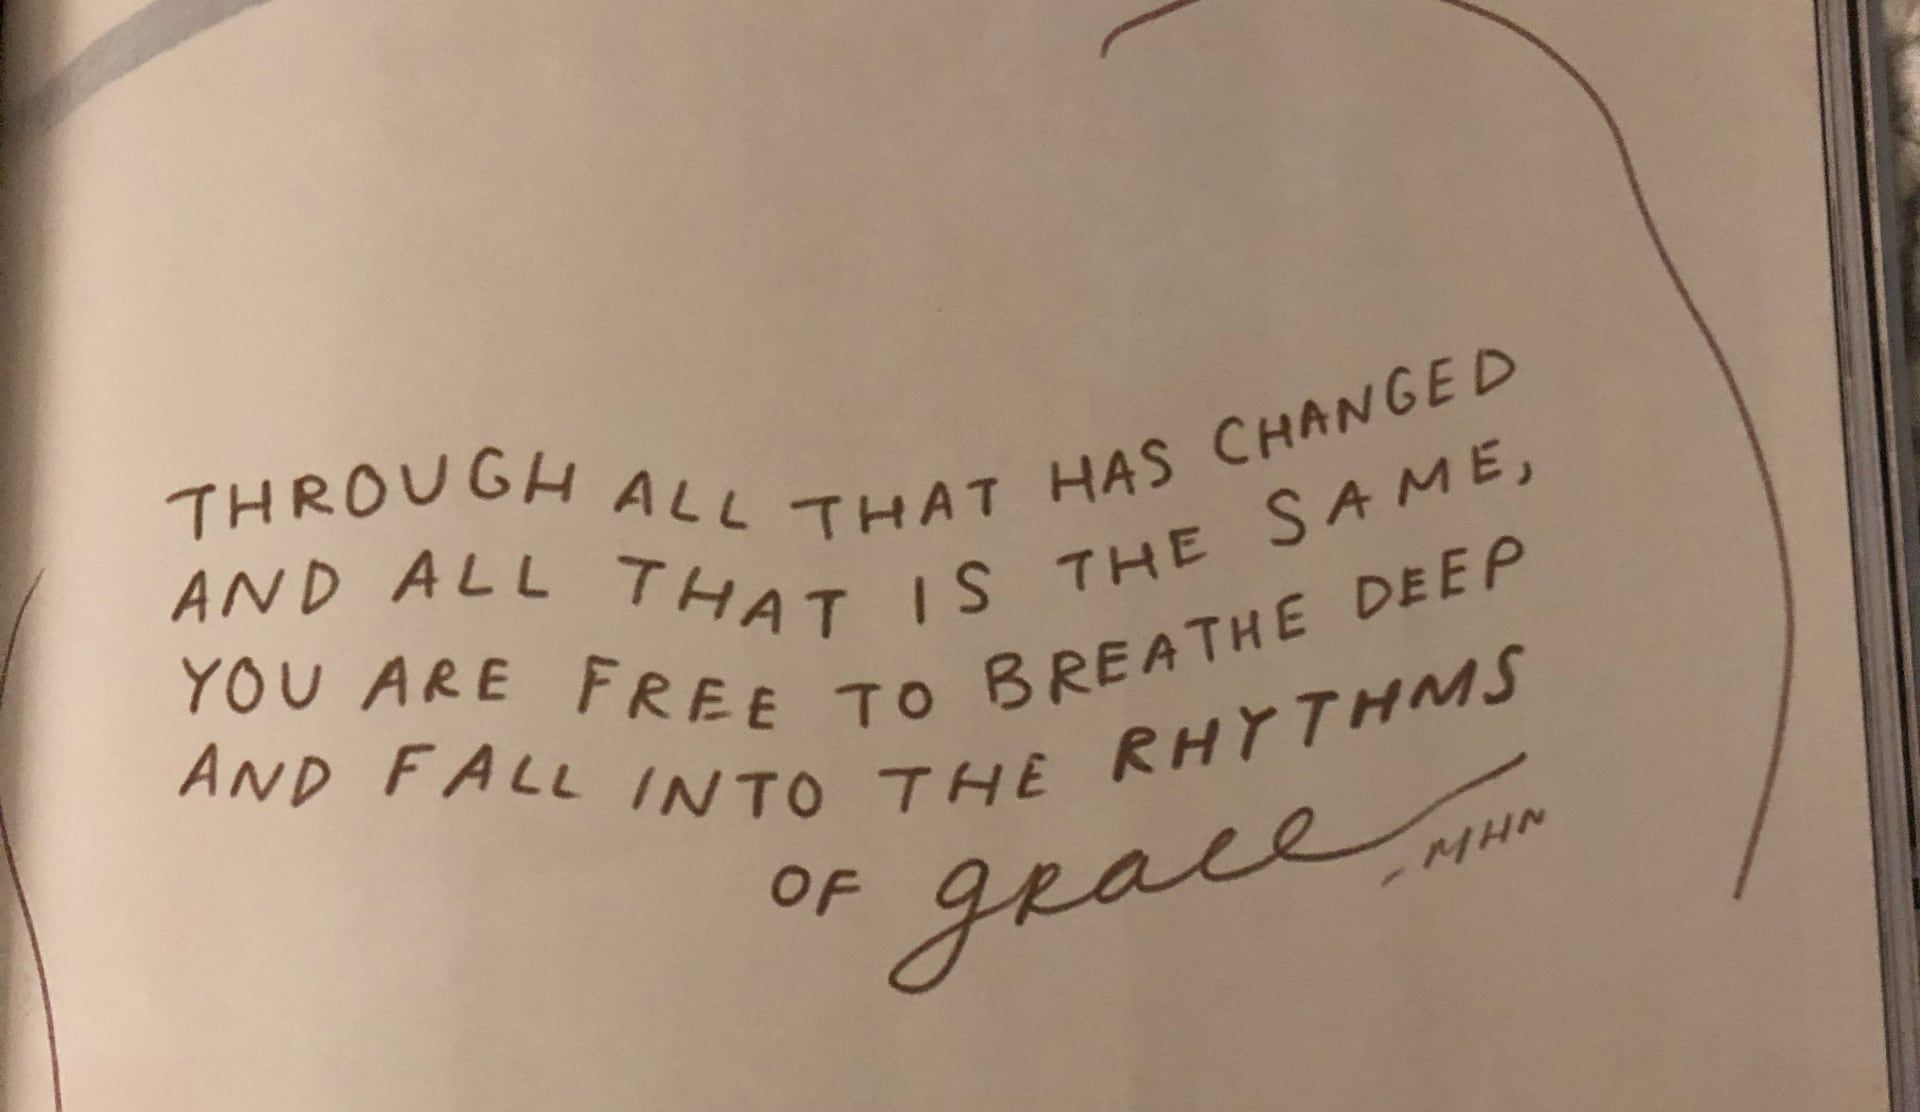 THROUGH ALL THAT HAS CHANGED
AND ALL THAT IS THE SAME,
YOU ARE FREE TO BREATHE DEEP
AND FALL INTO THE RHYTHMS
OF grace
- MHN